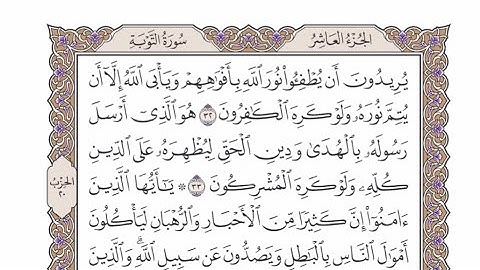 الجُزْءُ العَاشِرُ
سُورَةُ التَّوْبَةِ
يُرِيدُونَ أَن يُطْفِـُٔوا۟ نُورَ ٱللَّهِ بِأَفْوَٰهِهِمْ وَيَأْبَى ٱللَّهُ إِلَّآ أَن
يُتِمَّ نُورَهُۥ وَلَوْ كَرِهَ ٱلْكَٰفِرُونَ ٣٢ هُوَ ٱلَّذِىٓ أَرْسَلَ
رَسُولَهُۥ بِٱلْهُدَىٰ وَدِينِ ٱلْحَقِّ لِيُظْهِرَهُۥ عَلَى ٱلدِّينِ
كُلِّهِۦ وَلَوْ كَرِهَ ٱلْمُشْرِكُونَ ٣٣ ۞ يَٰٓأَيُّهَا ٱلَّذِينَ
ءَامَنُوٓا۟ إِنَّ كَثِيرًا مِّنَ ٱلْأَحْبَارِ وَٱلرُّهْبَانِ لَيَأْكُلُونَ
أَمْوَٰلَ ٱلنَّاسِ بِٱلْبَٰطِلِ وَيَصُدُّونَ عَن سَبِيلِ ٱللَّهِ ۗ وَٱلَّذِينَ
الحِزْبُ
٢٠